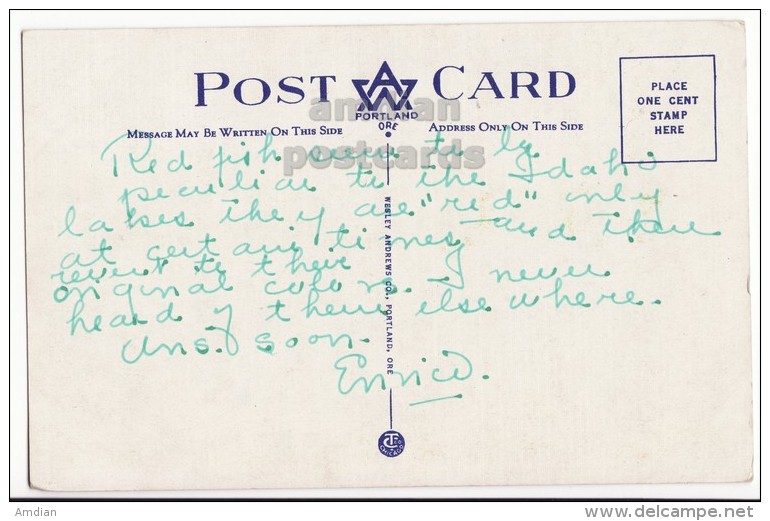 POST CARD
AWA
PORTLAND
ORE
MESSAGE MAY BE WRITTEN ON THIS SIDE
ADDRESS ONLY ON THIS SIDE
PLACE
ONE CENT
STAMP
HERE
amdian
postcards
Red fish seem to by
peculiar to the Idaho
lakes they are "red" only
at certain times and then
revert to their
original colors. I never
heard of them else where.
Ans. soon.
Enrico.
WESLEY ANDREWS CO., PORTLAND, ORE
CT CO
CHICAGO
Amdian
www.delcampe.net